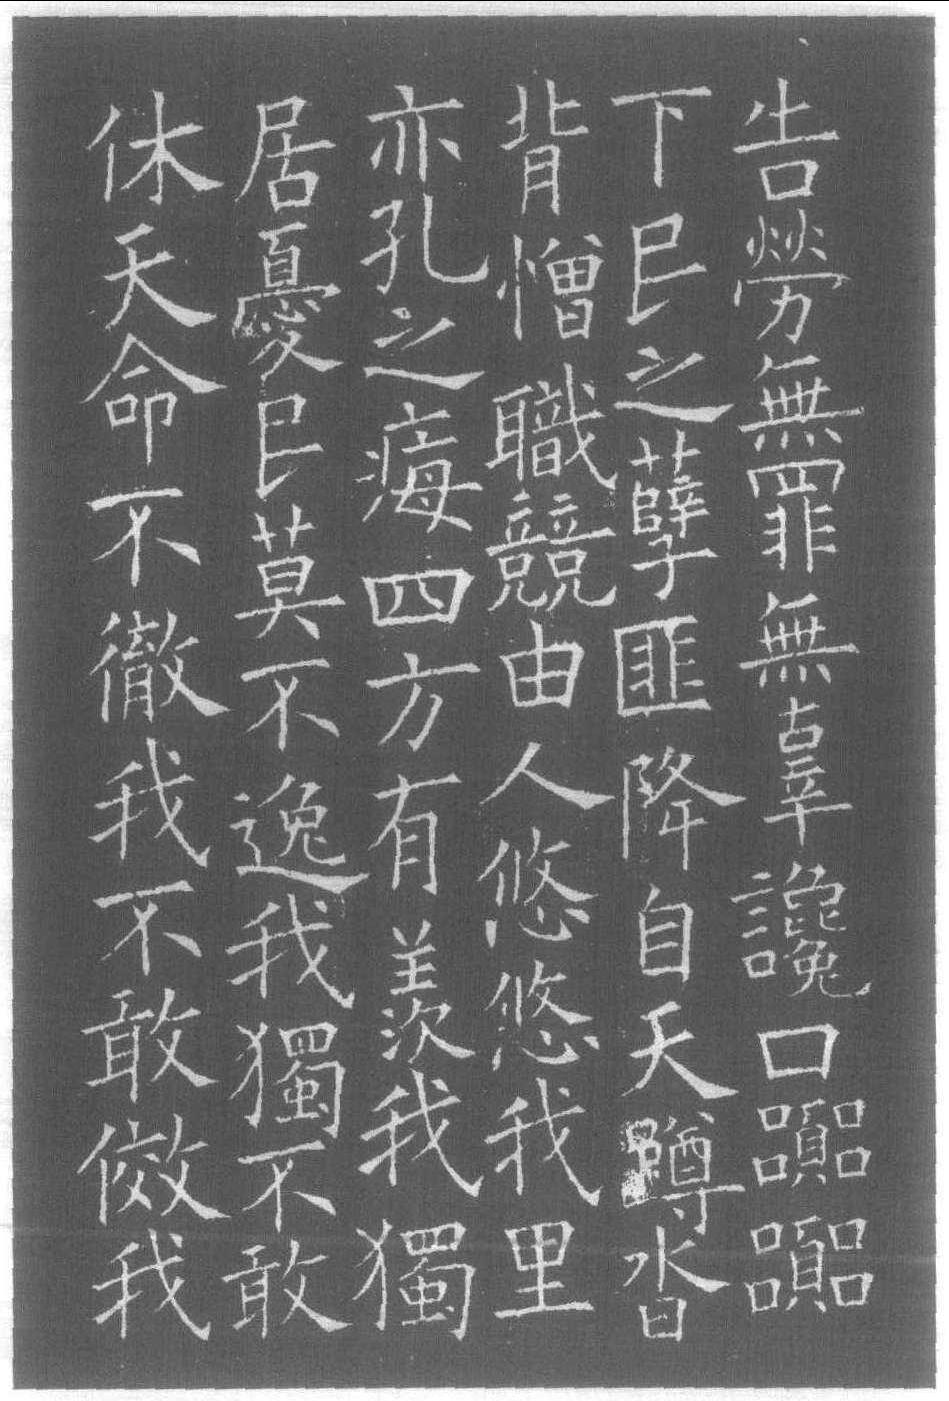 告勞無罪無辜讒口囂囂
下民之孽匪降自天噂沓
背憎職競由人悠悠我里
亦孔之痗四方有羨我獨
居憂民莫不逸我獨不敢
休天命不徹我不敢傚我